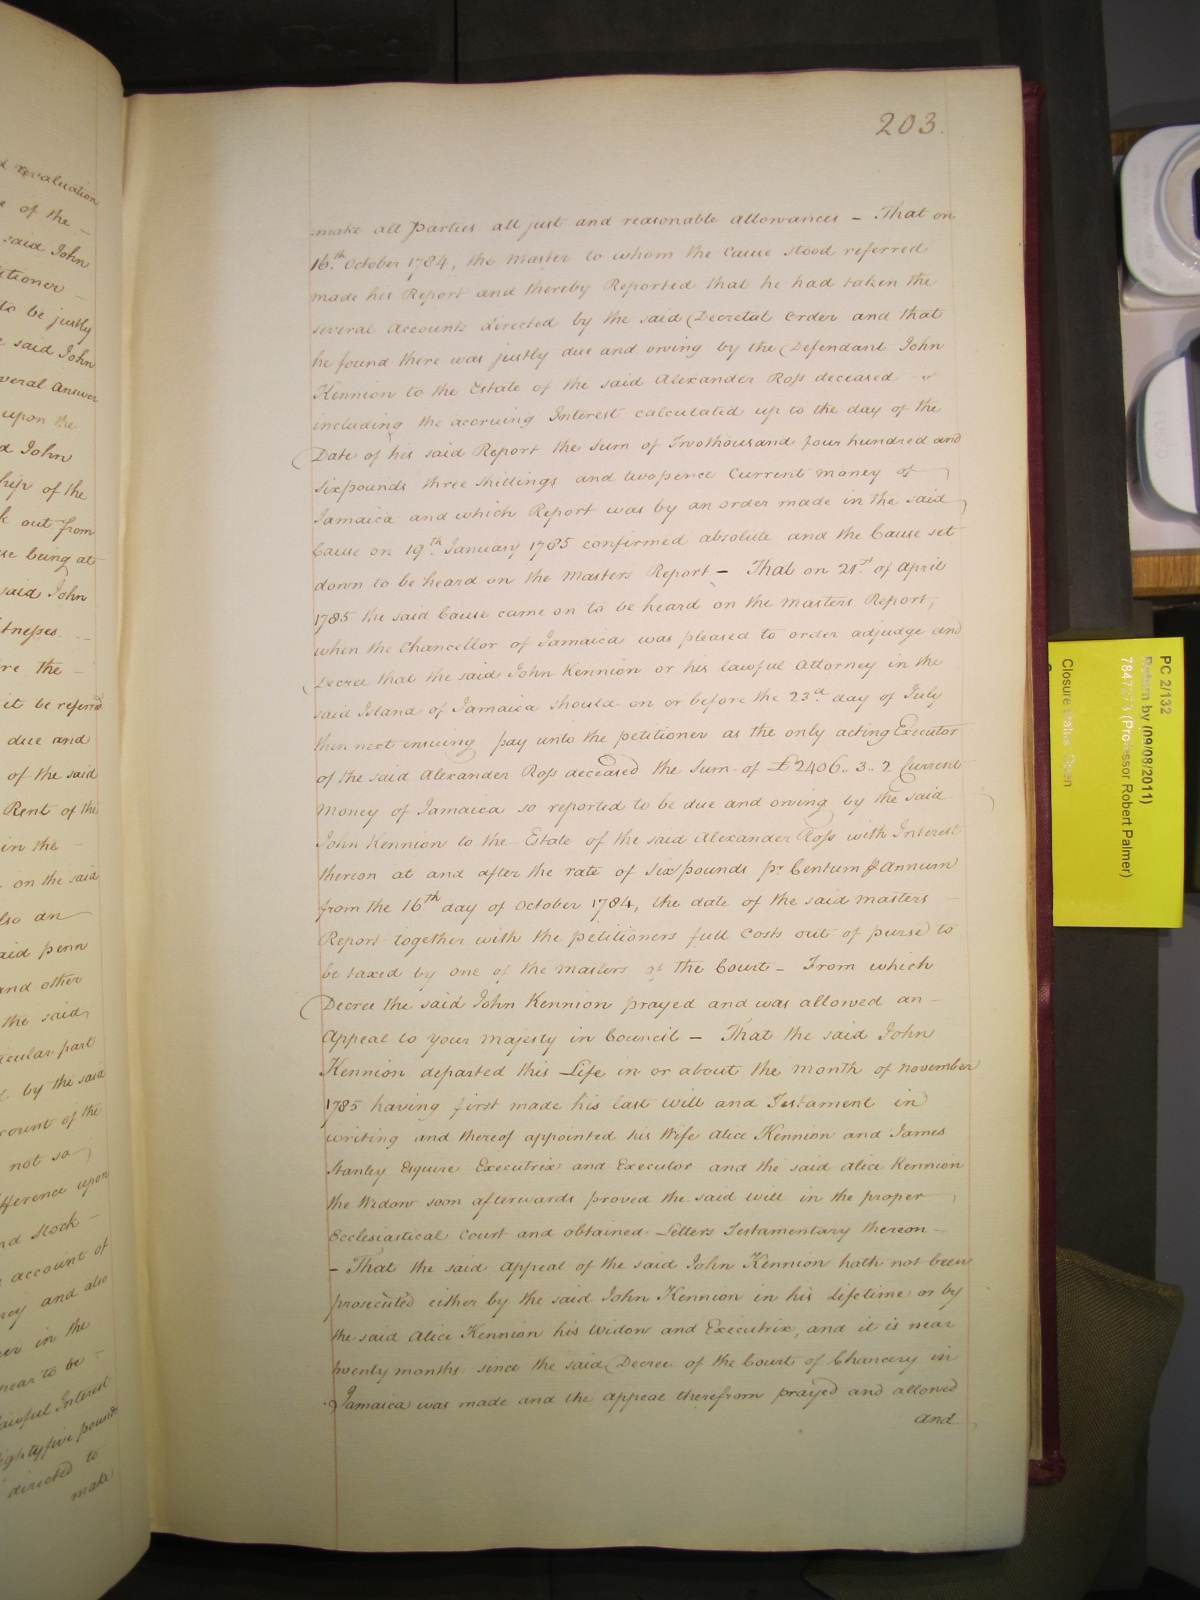 d revaluation
e of the –
said John
titioner –
to be justly
e said John
veral Answer
upon the
d John
hip of the
k out from
se being at
said John
itnesses. –
re the –
it be referred
due and
of the said
Rent of the
in the –
on the said
lso an
aid penn
and other
the said
icular part
d by the said
count of the
not so
ifference upon
nd Stock –
account of
ncy and also
er in the
near to be –
lawful Interest
ighty five pounds
directed to
make
203.
make all Parties all just and reasonable allowances – That on
16.th October 1784, the Master to whom the Cause stood referred
made his Report and thereby Reported that he had taken the
several Accounts directed by the said Decretal Order and that
he found there was justly due and owing by the Defendant John
Kennion to the Estate of the said Alexander Ross deceased
including the accruing Interest calculated up to the day of the
Date of his said Report the Sum of Twothousand four hundred and
Sixpounds three shillings and twopence Current money of
Jamaica and which Report was by an order made in the said
Cause on 19th January 1785 confirmed absolute and the Cause set
down to be heard on the Masters Report – That on 21st of April
1785 the said Cause came on to be heard on the Masters Report,
when the Chancellor of Jamaica was pleased to order adjudge and
Decree that the said John Kennion or his lawful Attorney in the
said Island of Jamaica should on or before the 23d day of July
then next ensuing pay unto the petitioner as the only acting Executor
of the said Alexander Ross deceased the Sum of £2406.. 3.. 2 Current
Money of Jamaica so reported to be due and owing by the said
John Kennion to the Estate of the said Alexander Ross with Interest
thereon at and after the rate of Six pounds pr Centum ⅌ Annum
from the 16th day of October 1784, the date of the said Masters
Report together with the petitioners full Costs out of purse to
be taxed by one of the Masters of the Court – From which
Decree the said John Kennion prayed and was allowed an –
Appeal to your Majesty in Council – That the said John
Kennion departed this Life in or about the month of November
1785 having first made his last will and Testament in
writing and thereof appointed his Wife Alice Kennion and James
Stanley Esquire Executrix and Executor and the said Alice Kennion
the Widow soon afterwards proved the said will in the proper
Ecclesiastical Court and obtained Letters Testamentary thereon –
– That the said Appeal of the said John Kennion hath not been
prosecuted either by the said John Kennion in his lifetime or by
the said Alice Kennion his Widow and Executrix, and it is near
twenty months since the said Decree of the Court of Chancery in
Jamaica was made and the appeal therefrom prayed and allowed
and
PC 2/132
Return by (09/08/2011)
(Professor Robert Palmer)
Closure status Open